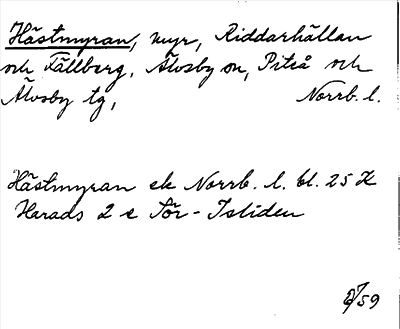 Hästmyran, myr, Riddarhällan
och Fällberg, Älvsby sn, Piteå och
Älvsby tg, Norrb. l.
Hästmyran ek Norrb. l. bl. 25 K
Harads 2 e Tör-Isliden
59